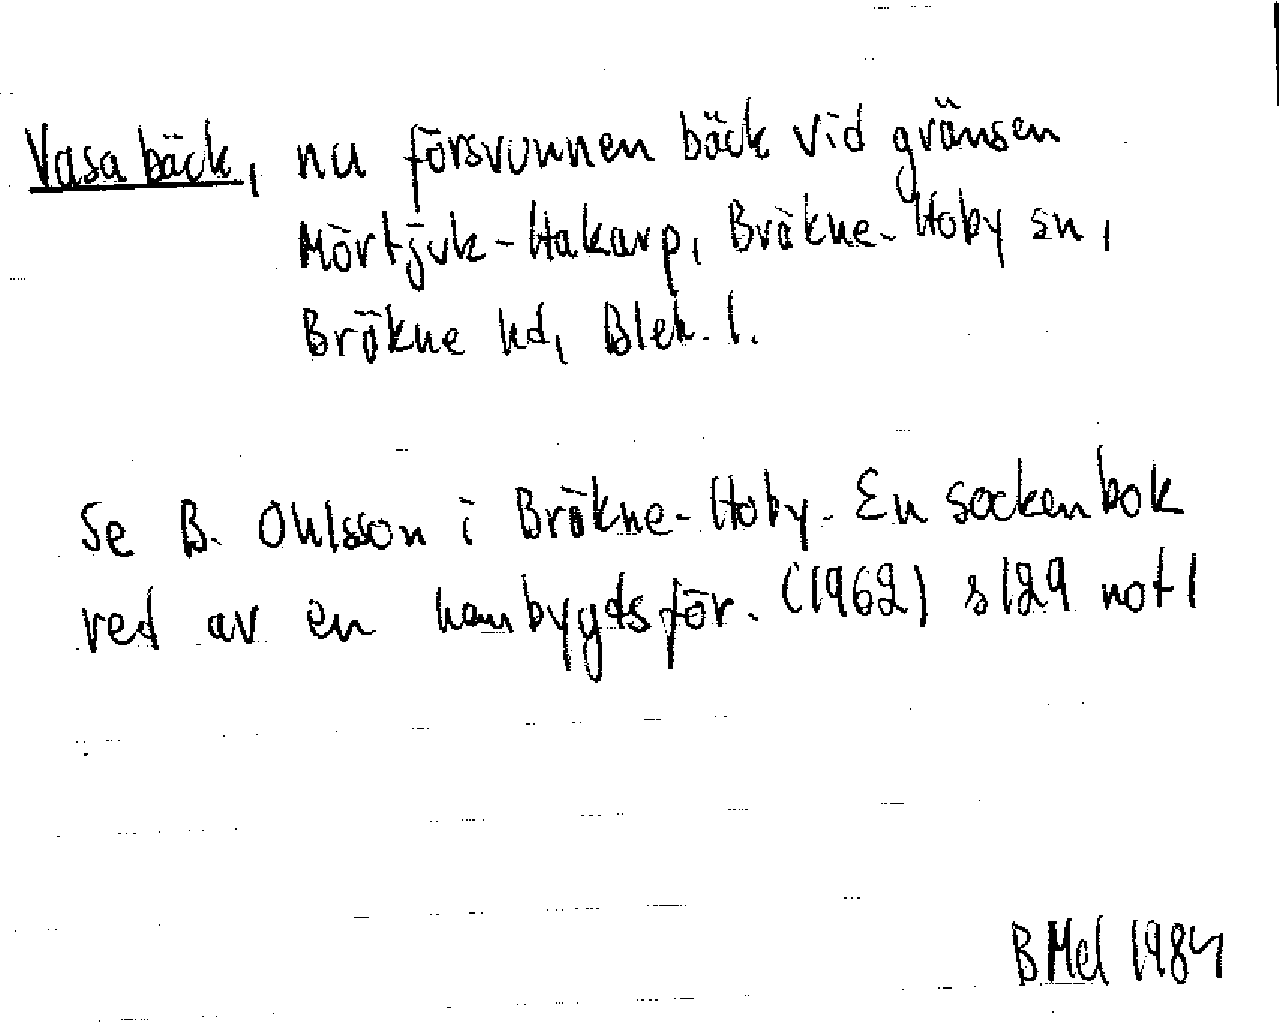 Vasabäck, nu försvunnen bäck vid gränsen
Mörtjuk-Hakarp, Bräkne-Hoby sn,
Bräkne hd, Blek. l.
Se B. Ohlsson i Bräkne-Hoby. En sockenbok
red av en hembygdsför. (1962) s 129 not 1
B Mel 1984